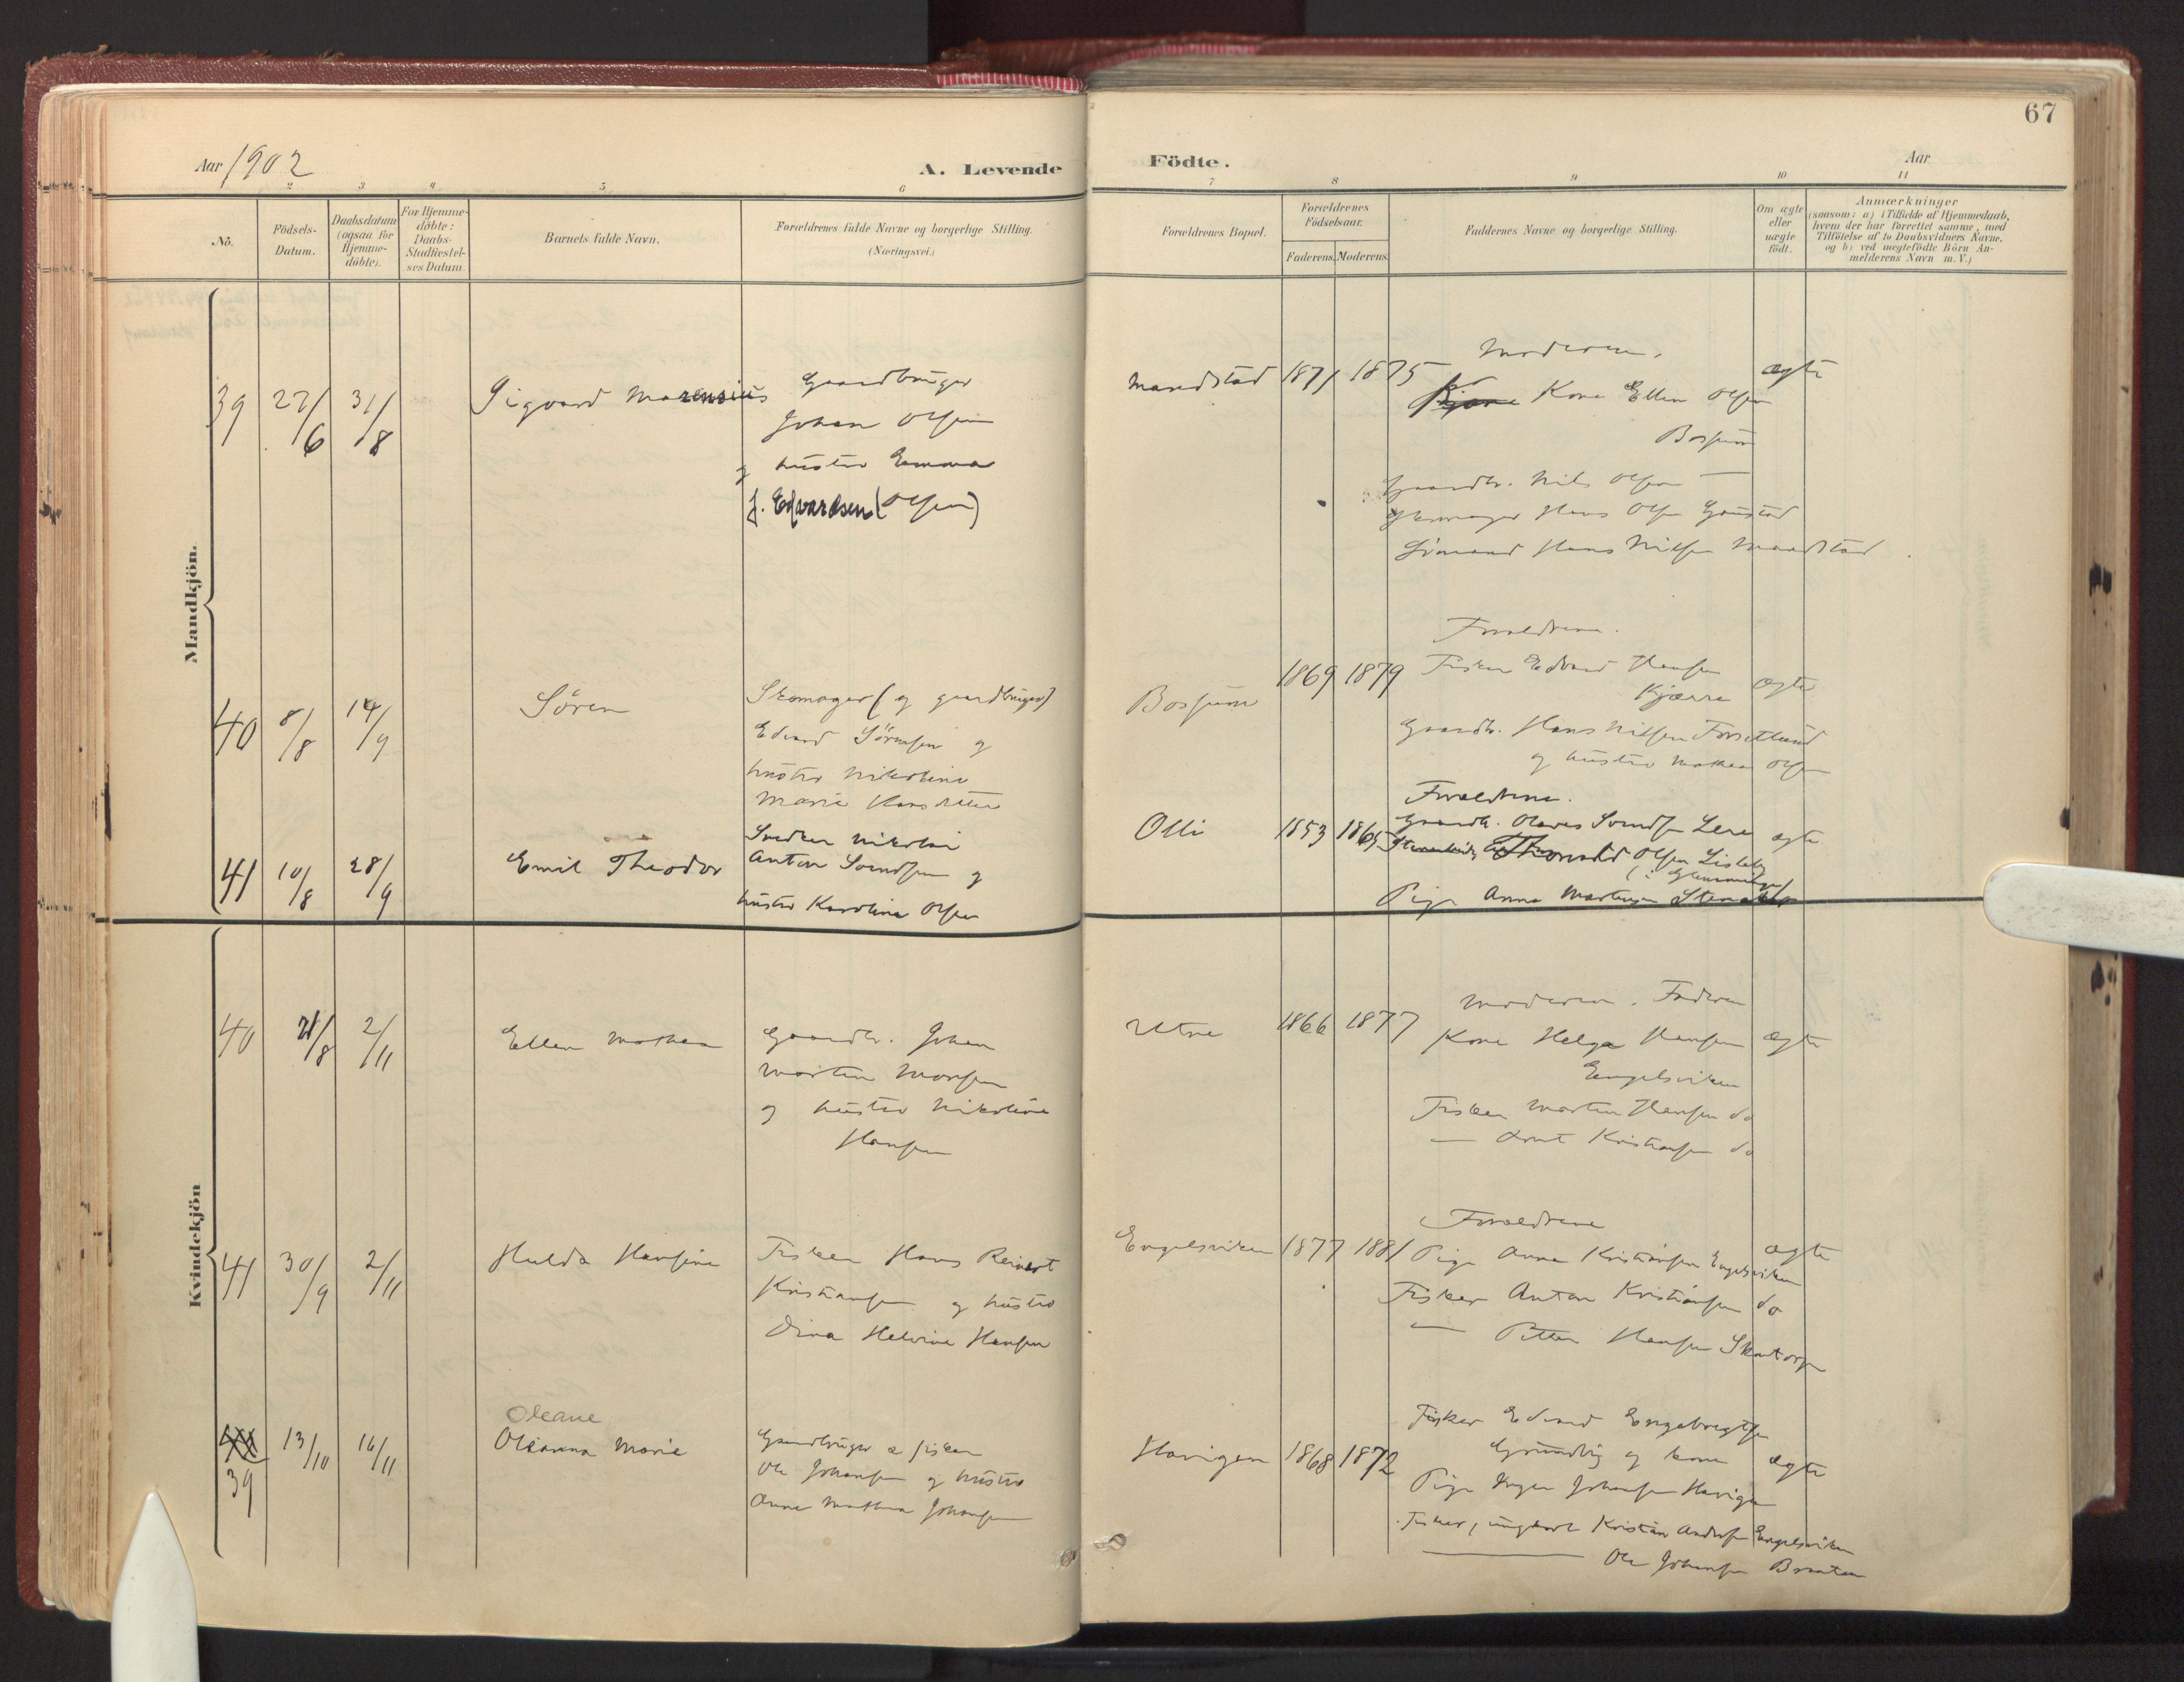 67
Aar 1902
A. Levende Födte.
Aar
2 3 4 5 6 7 8 9 10 11
No.
Födsels-
Datum.
Daabsdatum
(ogsaa for
Hjemme-
döbte).
For Hjemme-
döbte:
Daabs-
Stadfæstel-
ses Datum.
Barnets fulde Navn.
Forældrenes fulde Navne og borgerlige Stilling.
(Næringsvei.)
Forældrenes Bopæl.
Forældrenes
Födselsaar.
Faderens. Moderens.
Faddernes Navne og borgerlige Stilling.
Om ægte
eller
uægte
födt.
Anmærkninger
(saasom: a) i Tilfælde af Hjemmedaab,
hvem der har forrettet samme, med
Tilföielse af to Daabsvidners Navne,
og b) ved uægtefödte Börn An-
melderens Navn m. V.)
Mandkjön.
39
27/6
31/8
Sigvard Marensius
Gaardbruger
Johan Olsen
og hustro Emma
f. Edvardsen (Olsen)
Maredstad
1871
1875
Moderen.
Kone Ellen Olsen
Bossum
Gaardb. Nils Olsen —
Skomager Hans Olsen
Hans Nilsen
ægte
40
8/8
14/9
Sören
Skomager (og gaardbruger)
Edvard Sörensen og
hustro Nikoline
Marie Hansdatter
Bossum
1869
1879
Forældrene.
Fisker Edvard Hansen
Kjærre
Gaardb. Hans Nilsen
og hustro Mathea Olsen
ægte
41
10/8
28/9
Emil Theodor
Snedker Nikolai
Anton Svendsen og
hustro Karoline Olsen
Olli
1853
1865
Forældrene.
Gaardb. Olaves Svendsen Lere
Thorvald Olsen Lisleby
Pige Anna Martinsen
ægte
Kvindekjön
40
21/8
2/11
Ellen Mathea
Gaardb. Johan
Martin Monsen
og hustro Nikoline
Hansen
Utne
1866
1877
Moderen. Faderen
Kone Helga Hansen
Engelsviken
Fisker Martin Hansen do
— Arnt Kristiansen do
ægte
41
30/9
2/11
Hulda Hansine
Fisker Hans Reinert
Kristiansen og hustro
Dina Helvine Hansen
Engelsviken
1877
1881
Forældrene
Pige Anna Kristiansen Engelsviken
Fisker Anton Kristiansen do
— Petter Hansen Skantorp
ægte
39
13/10
16/11
Oleane
Oleanna Marie
Gaardbruger & fisker
Ole Johansen og hustro
Anne Mathea Johansen
Havigen
1868
1872
Fisker Edvard Engebregtsen
Grundvig og kone
Pige Inga Johansen Havigen
Fisker, ungkarl Kristian Andersen Engelsviken
— Ole Johansen Braaten
ægte